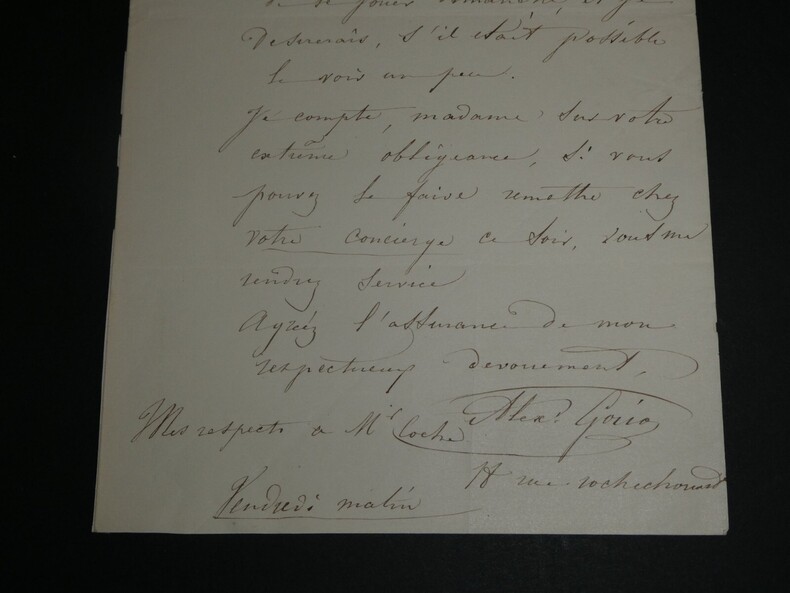 de le jouer dimanche, et je
Desirerais, s'il était possible
le voir un peu.
Je compte, madame sur votre
extrême obligeance, si vous
pouvez le faire remettre chez
votre concierge ce soir, vous me
rendrez service
Agréez l'assurance de mon
respectueux devouement,
Mes respects a Mr Coche Alexe. Goria
rue rochechouard
Vendredi matin